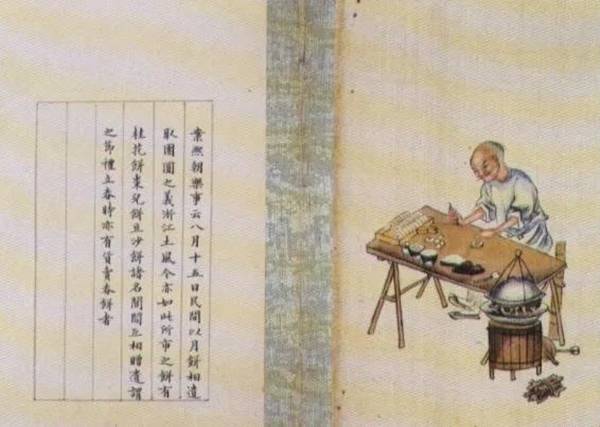 案熙朝樂事云八月十五日民間以月餅相遺
取團圓之義浙江土風今亦如此所市之餅有
桂花餅棗兒餅豆沙餅諸名閭閻互相贈遺謂
之節禮立春時亦有貨賣春餅者